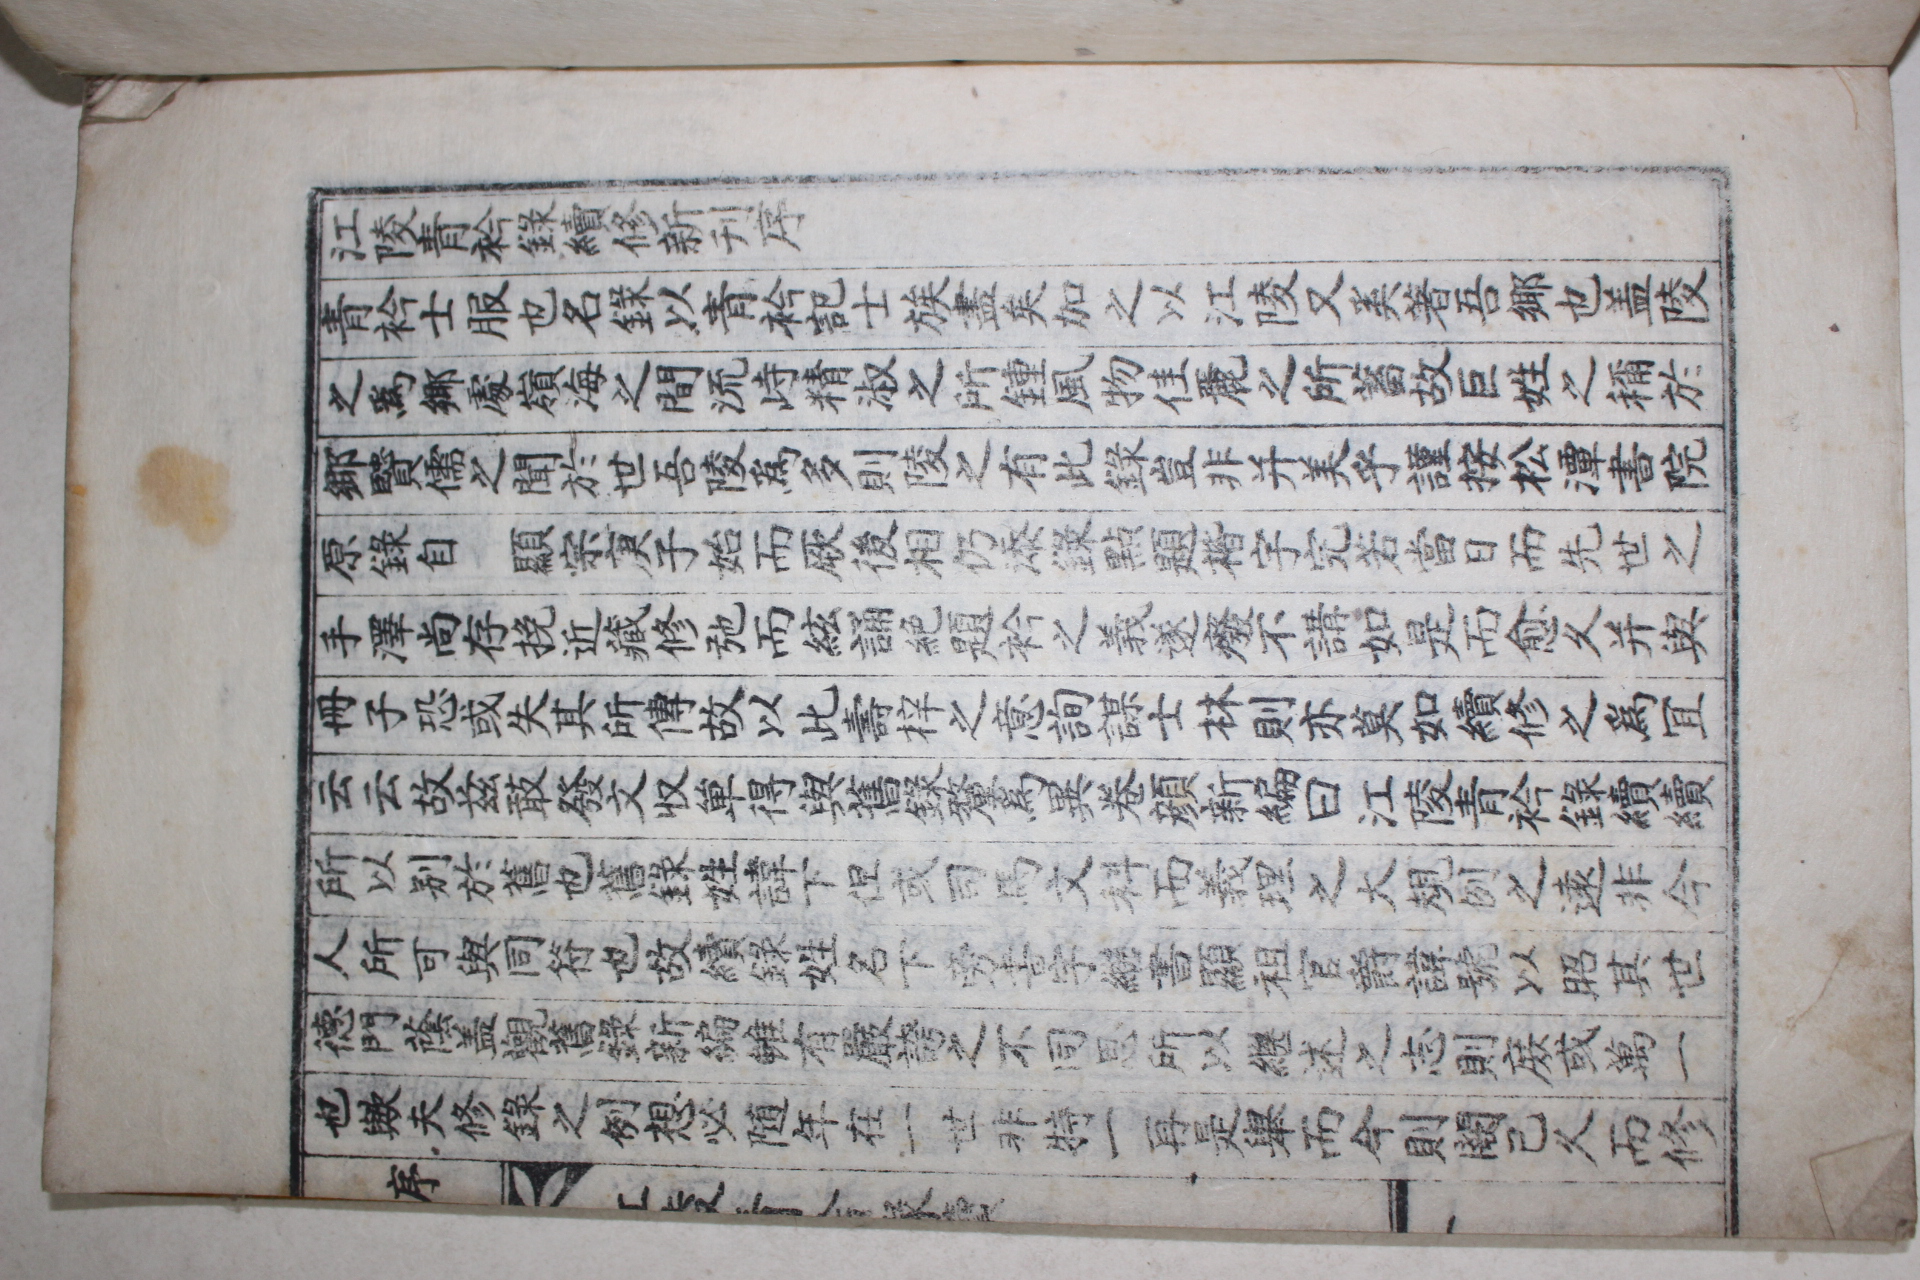 江陵青衿錄續修新刊序
青衿士服也名錄以青衿記士族盡矣加之以江陵又美著吾鄉也盖陵
之爲鄉處嶺海之間流峙精淑之所鍾風物佳麗之所蓄故巨姓之稱於
鄉賢儒之聞於世吾陵爲多則陵之有此錄豈非并美乎謹按松潭書院
原錄自 顯宗庚子始而厥後相仍添錄點題楷字完若當日而先世之
手澤尚存挽近藏修弛而絃誦絕題衿之義遂廢不講如是而愈久并與
冊子恐或失其所傳故以此壽梓之意詢謀士林則亦莫如續修之爲宜
云云故玆敢發文收單得與舊錄釐爲異卷顏新編曰江陵青衿錄續續
所以別於舊也舊錄姓諱下但或司馬文科而義理之大規例之遠非今
人所可與同符也故續錄姓名下 書字繼書顯祖官爵諱號以昭其世
德門蔭盖觀舊錄新編雖有嚴 之不同思所以繼述之志則庶或萬一
也歟夫修錄之例想必隨年在一世非特一再是舉而今則闕已久而修
序
江陵青衿錄